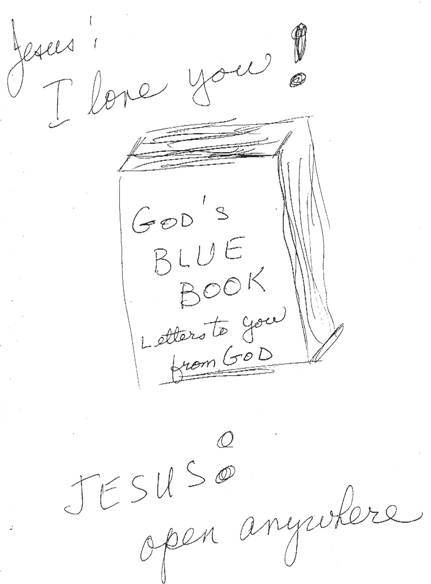 Jesus!
I love you!
GOD's
BLUE
BOOK
Letters to you
from GOD
JESUS:
open anywhere